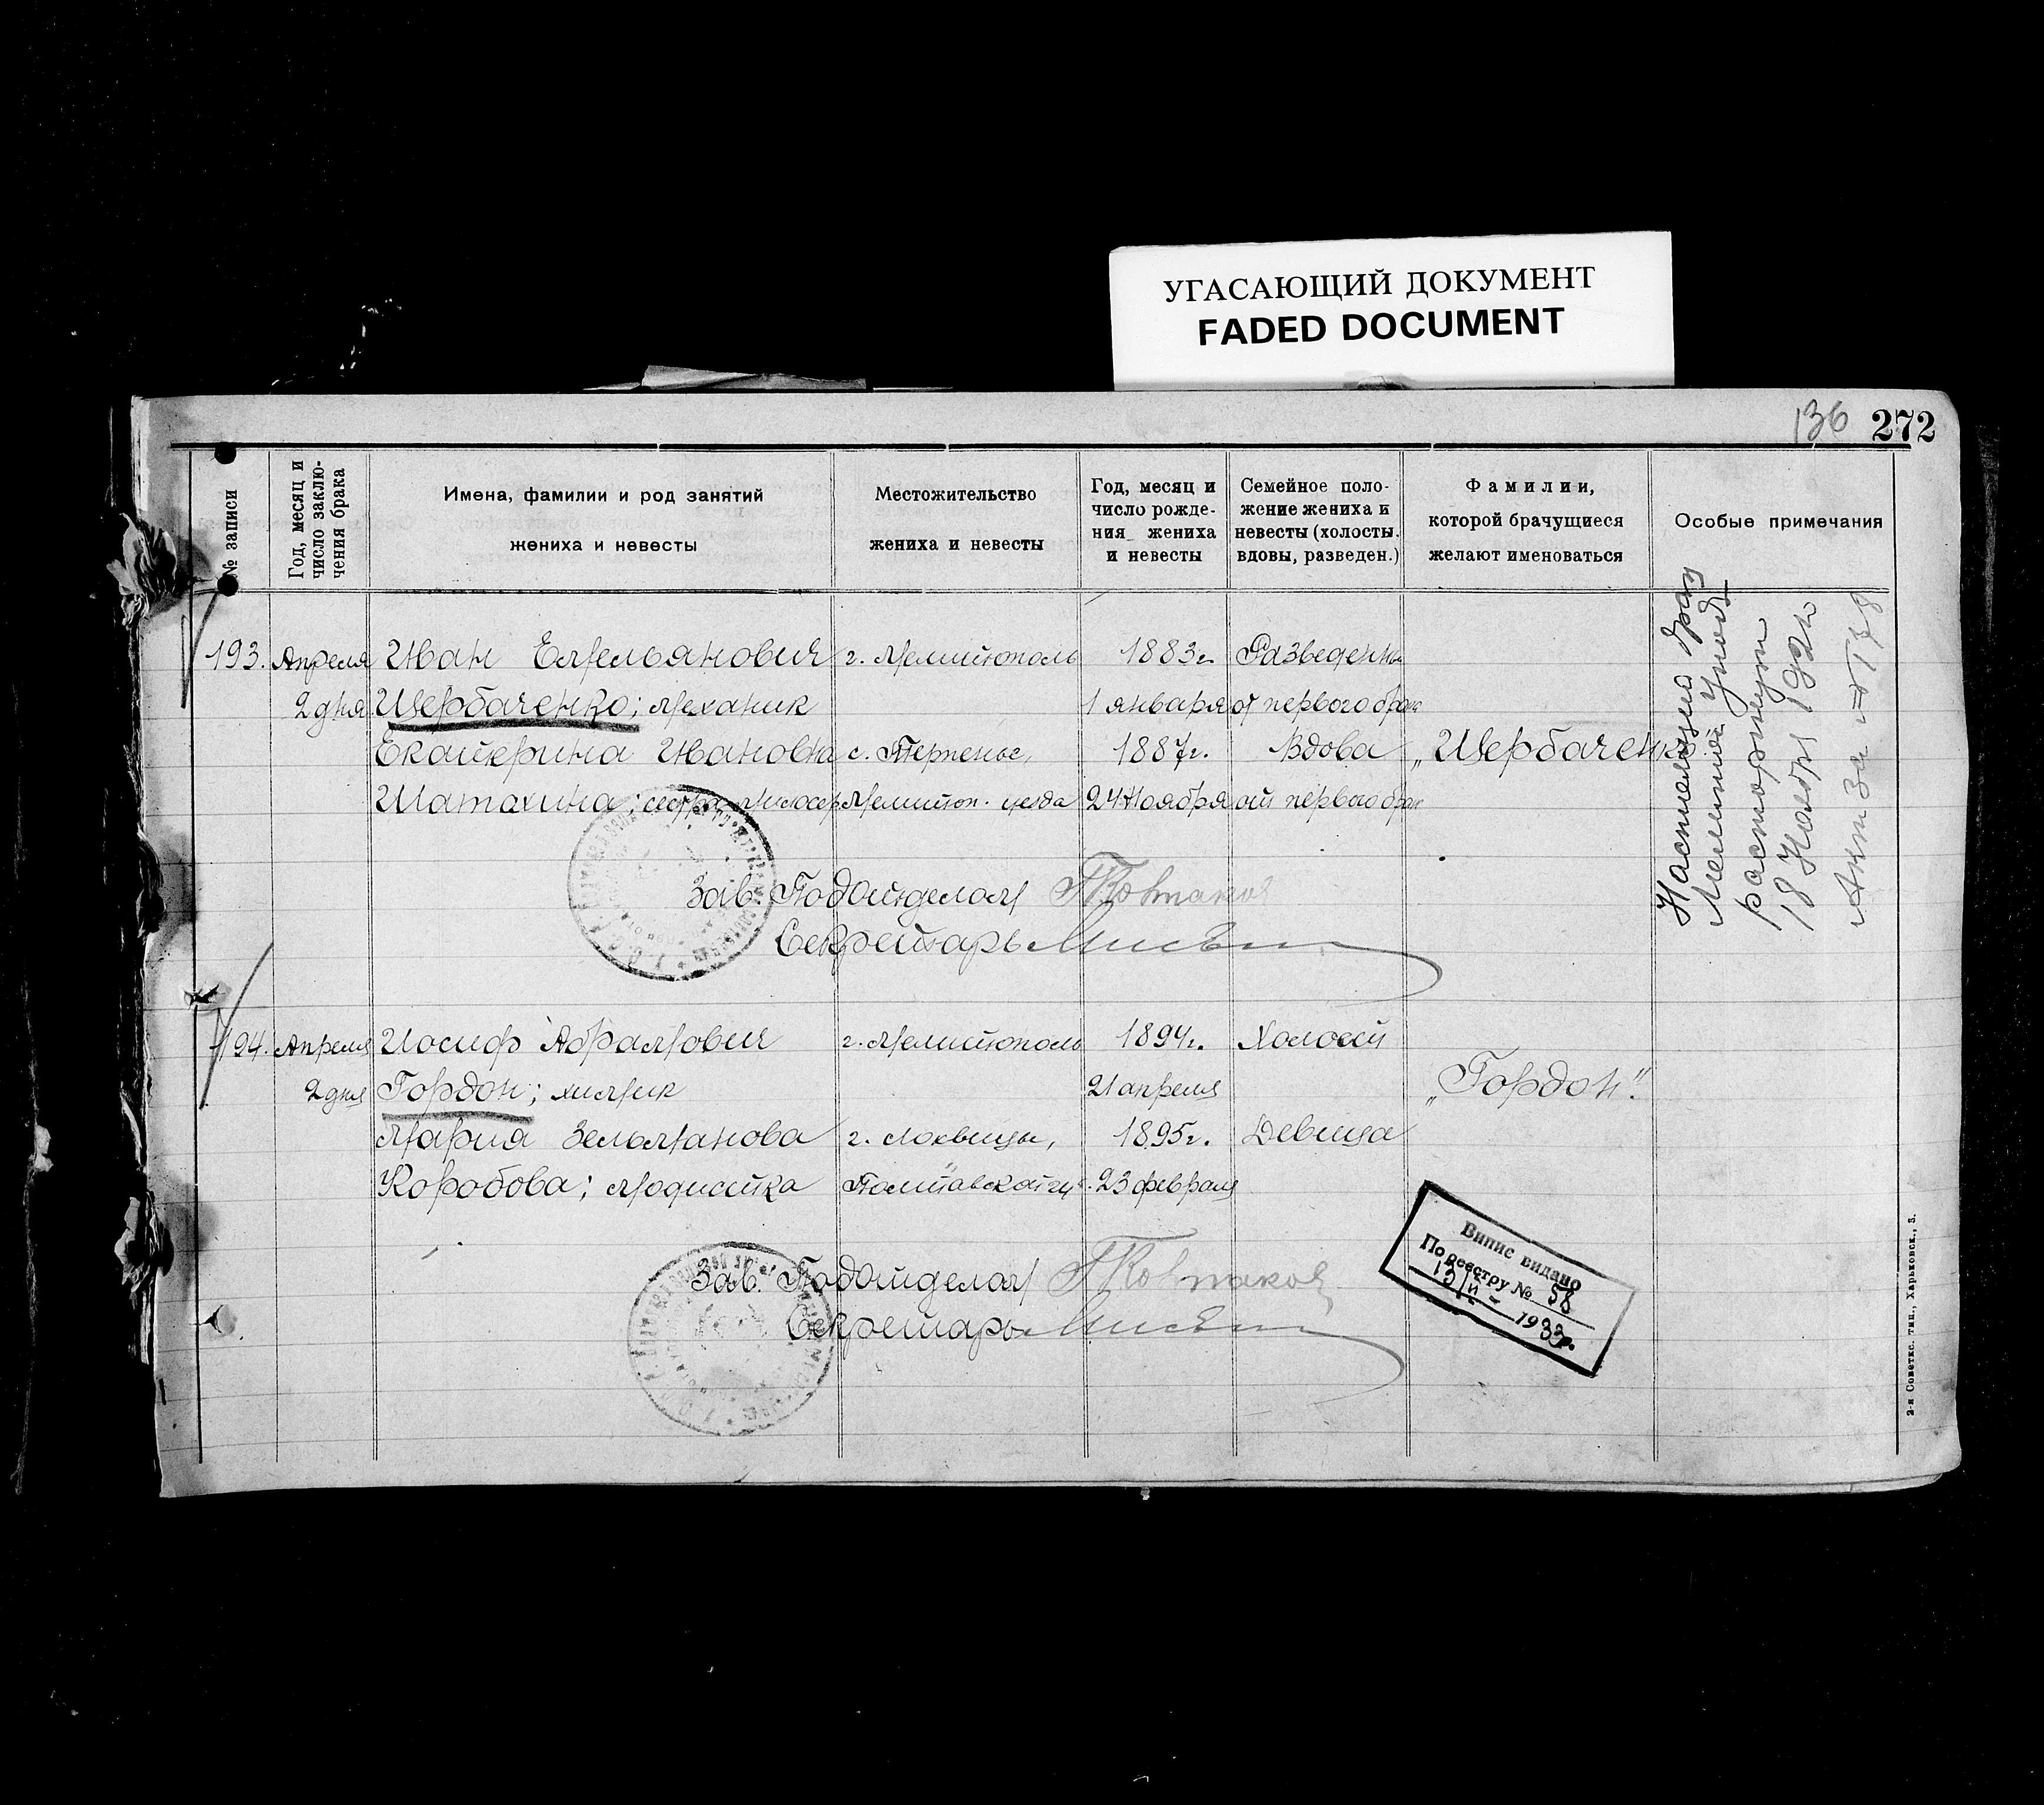 УГАСАЮЩИЙ ДОКУМЕНТ
FADED DOCUMENT
136 272
№ записи
Год, месяц и число заклю-
чения брака
Имена, фамилии и род занятий
жениха и невесты
Местожительство
жениха и невесты
Год, месяц и
число рожде-
ния жениха
и невесты
Семейное поло-
жение жениха и
невесты (холосты,
вдовы, разведен.)
Фамилии,
которой брачущиеся
желают именоваться
Особые примечания
193. Апреля Иван Емельянович г. Мелитополь 1883г. Разведенный
2 дня Щербаченко; механик 1 января от первого брак
Екатерина Ивановна с. Терпенье, 1887г. Вдова „Щербаченко".
Шатохина; сестра милосер Мелитоп. уезда 24 Ноября от первого брак
Настоящий брак
расторгнут
18 Ноября
Акт За № 178
Зав. Подотделом
Секретарь
194. Апреля Иосиф Абрамович г. Мелитополь 1894г. Холост
2 дня Гордон; химик 21 апреля „Гордон".
Мария Зельманова г. Лохвицы, 1895г. Девица
Коробова; модистка Полтавской гу. 23 февраля
Зав. Подотделом
Секретарь
Випис видано
По реестру № 58
13/II - 1933г.
2-я Советск. тип., Харьковск., 3.